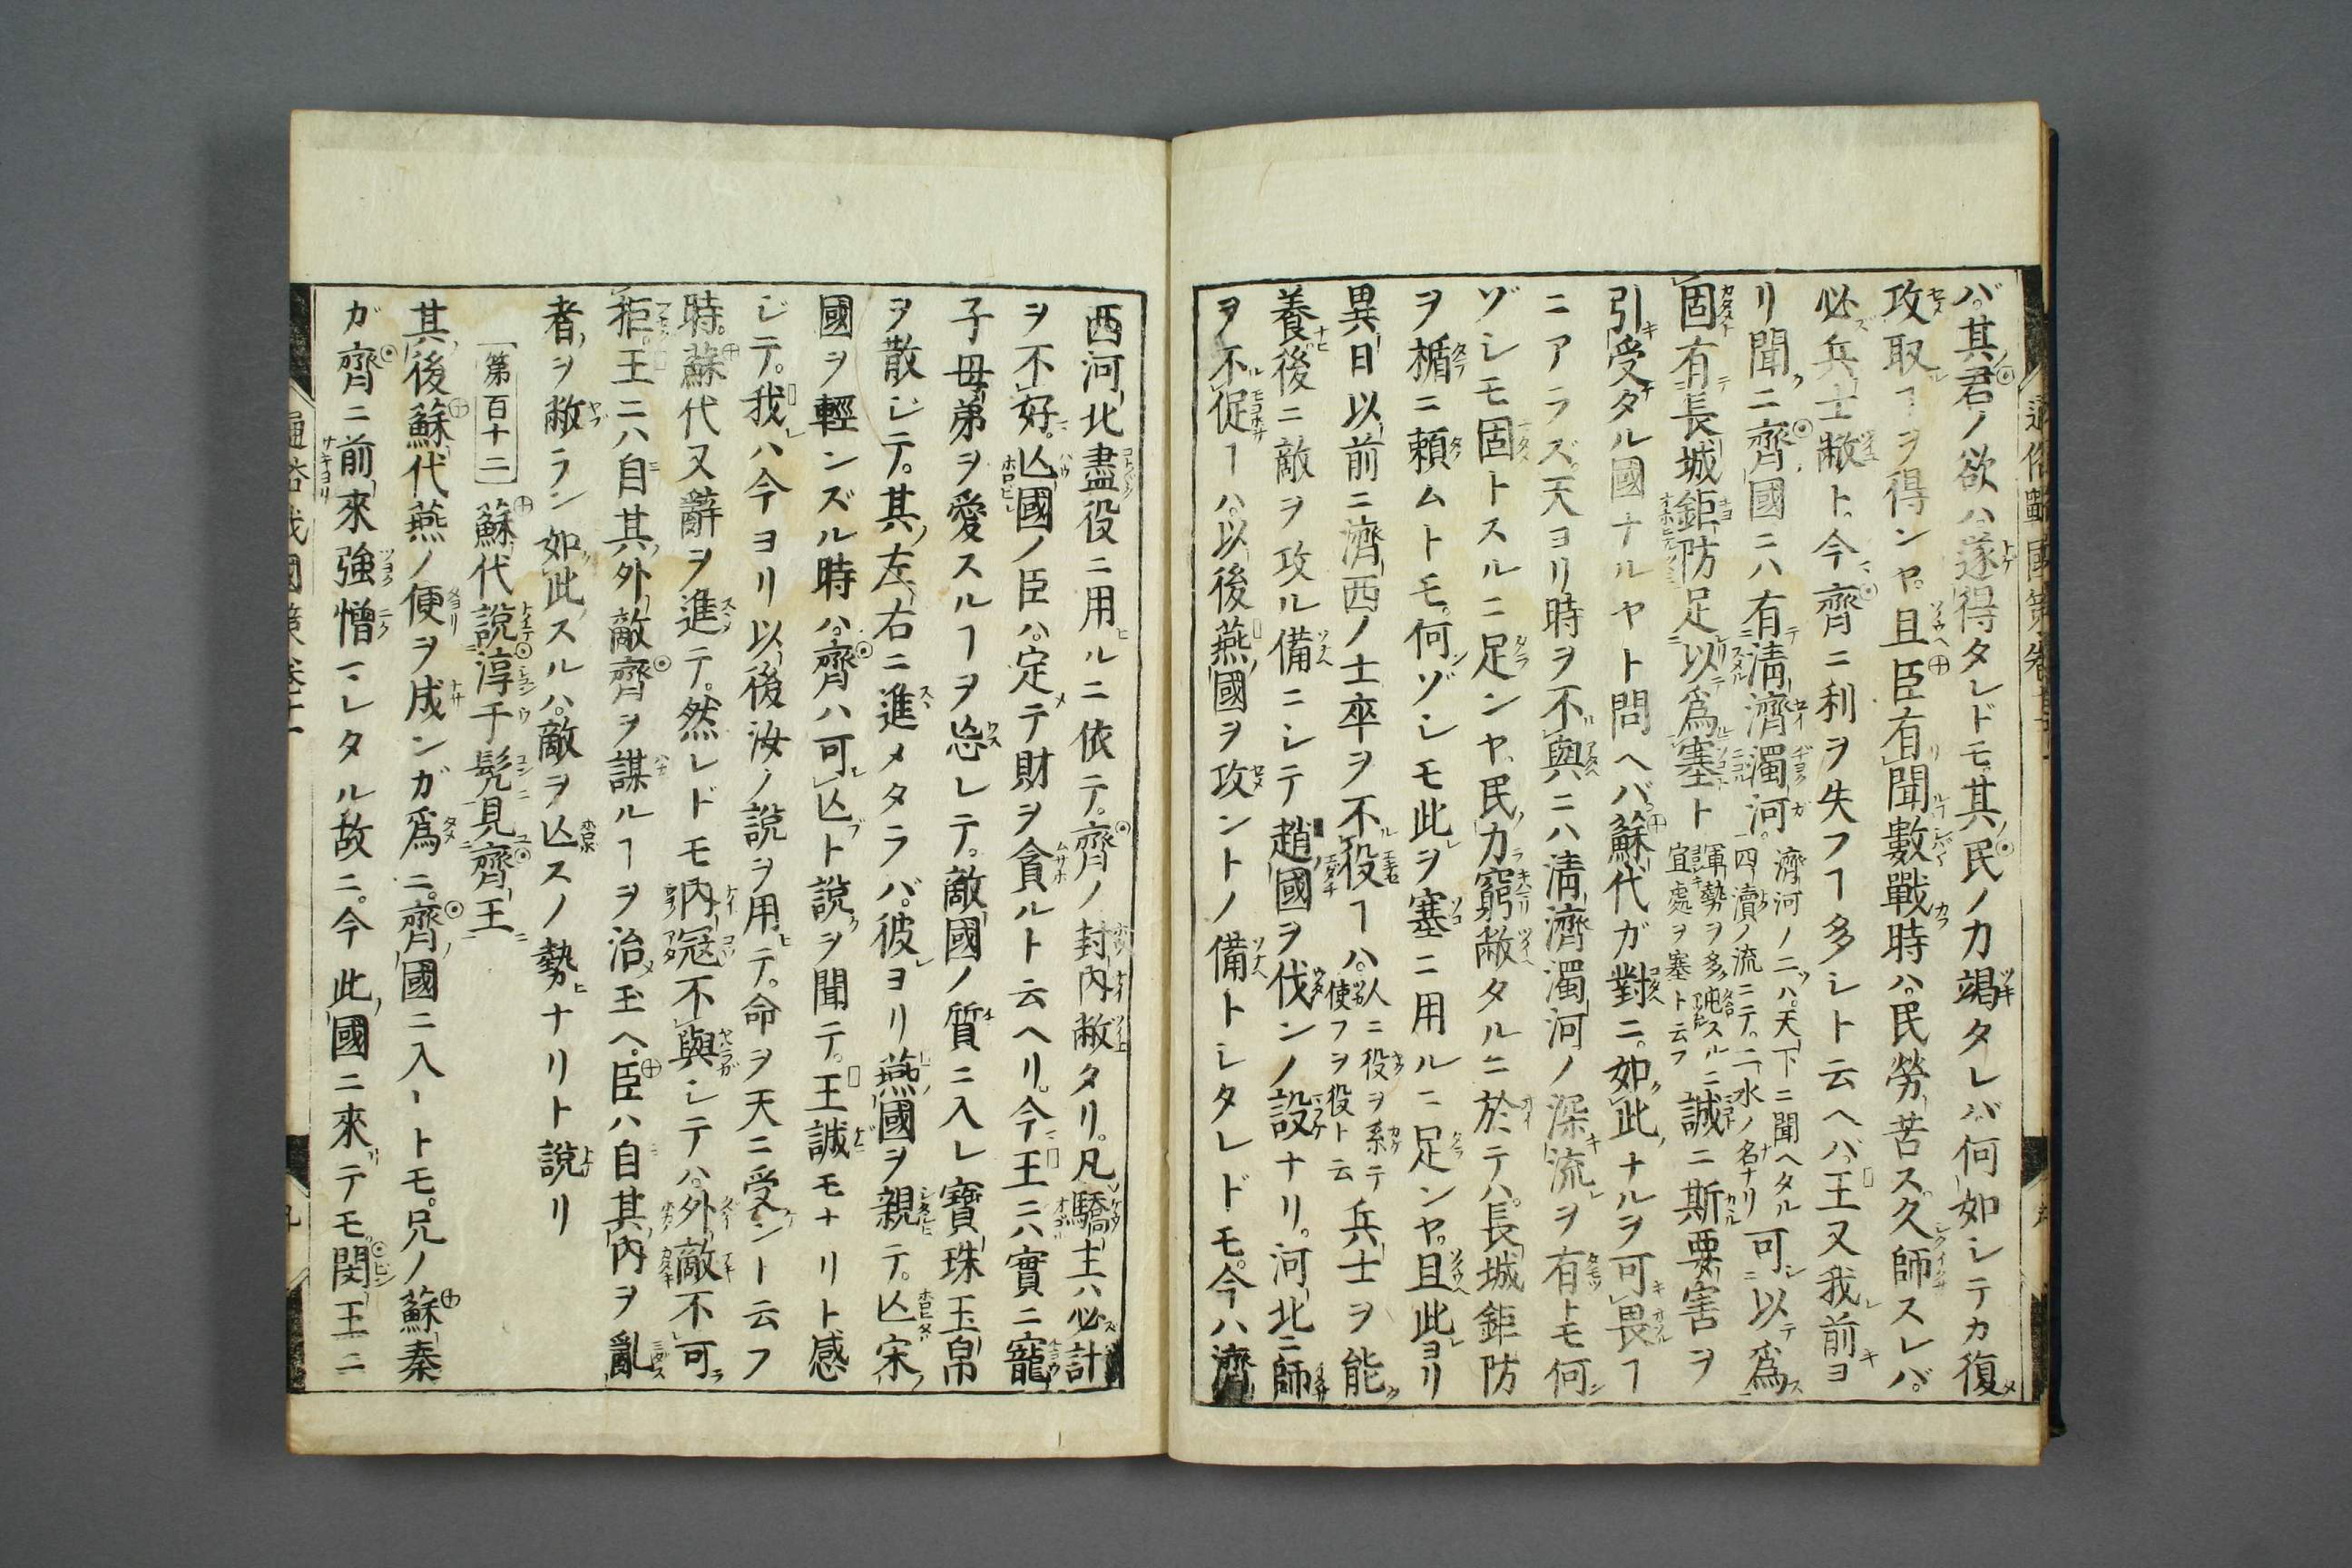 バ其君ノ欲ハ遂得タレドモ其民ノ力竭タレバ何如シテカ復
攻取ヿヲ得ンヤ且臣有聞數戰時ハ民勞苦ス久師スレバ
必兵士敝ト今齊ニ利ヲ失フヿ多シト云ヘバ王又我前ヨ
リ聞ニ齊國ニハ有淸濟濁河濟河ノ二ツハ天下ニ聞ヘタル四瀆ノ流ニテ二水ノ名ナリ可以爲
固有長城鉅防足以爲塞ト軍勢ヲ多屯スルニ宜處ヲ塞ト云フ誠ニ斯要害ヲ
引受タル國ナルヤト問ヘバ蘇代ガ對ニ如此ナルヲ可畏ヿ
ニアラズ天ヨリ時ヲ不與ニハ淸濟濁河ノ深流ヲ有トモ何
ゾシモ固トスルニ足ンヤ民力窮敝タルニ於テハ長城鉅防
ヲ楯ニ頼ムトモ何ゾシモ此ヲ塞ニ用ルニ足ンヤ且此ヨリ
異日以前ニ濟西ノ士卒ヲ不役ヿハ人ニ役ヲ系テ使フヲ役ト云兵士ヲ能
養後ニ敵ヲ攻ル備ニシテ趙國ヲ伐ンノ設ナリ河北ニ師
ヲ不促ヿハ以後燕國ヲ攻ントノ備トシタレドモ今ハ濟
西河北盡役ニ用ルニ依テ齊ノ封内敝タリ凡驕主ハ必計
ヲ不好亾國ノ臣ハ定テ財ヲ貪ルト云ヘリ今王ニハ實ニ寵
子母弟ヲ愛スルヿヲ恐レテ敵國ノ質ニ入レ寶珠玉帛
ヲ散ジテ其左右ニ進メタラバ彼ヨリ燕國ヲ親テ亾宋
國ヲ輕ンズル時ハ齊ハ可亾ト說ヲ聞テ王誠モナリト感
ジテ我ハ今ヨリ以後汝ノ說ヲ用テ命ヲ天ニ受ント云フ
時蘇代又辭ヲ進テ然レドモ内冦不與シテハ外敵不可
拒王ニハ自其外敵齊ヲ謀ルヿヲ治玉ヘ臣ハ自其内ヲ亂
者ヲ敝ラン如此スルハ敵ヲ亾スノ勢ナリト說リ
第百十二 蘇代說淳于髠見齊王
其後蘇代燕ノ便ヲ成ンガ爲ニ齊國ニ入ートモ兄ノ蘇秦
ガ齊ニ前來強憎マレタル故ニ今此國ニ來テモ閔王ニ